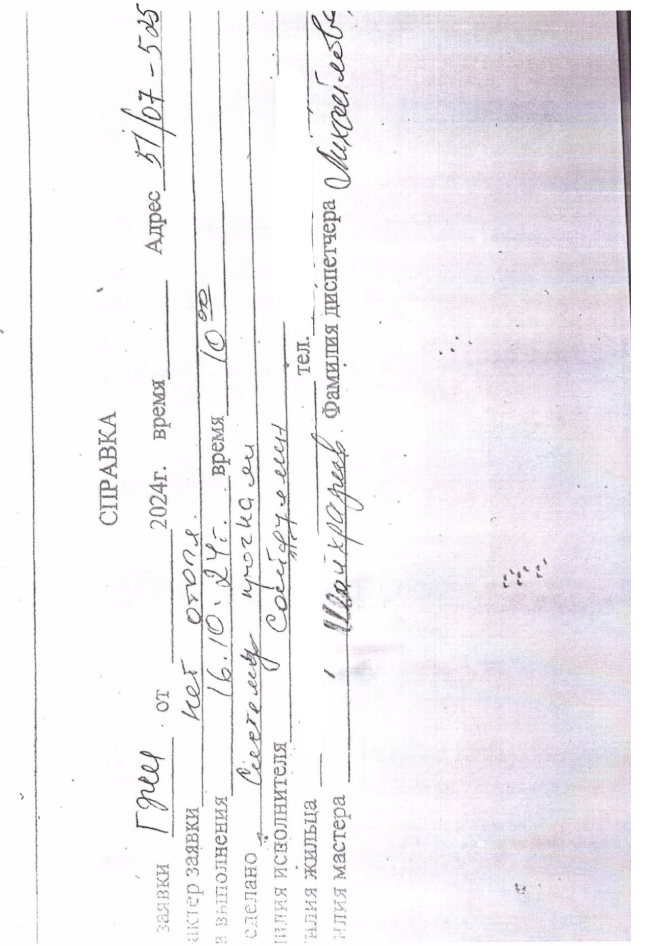 СПРАВКА
заявки от 2024г. время Адрес 57/07-525
ктер заявки нет отопл.
в выполнения 16.10.24г. время 10 00
сделано Систему прогнали
илия исполнителя
илия жильца тел.
илия мастера Фамилия диспетчера Михайлова